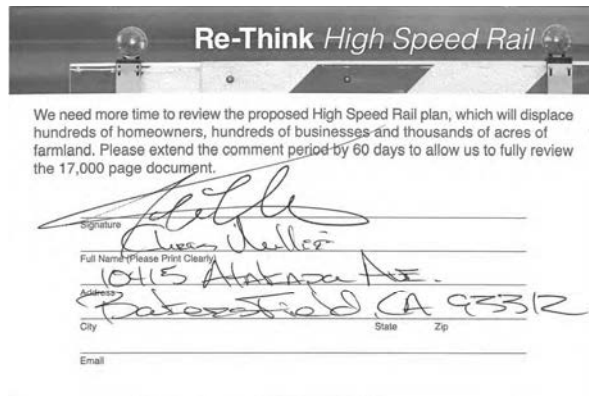 Re-Think High Speed Rail
We need more time to review the proposed High Speed Rail plan, which will displace
hundreds of homeowners, hundreds of businesses and thousands of acres of
farmland. Please extend the comment period by 60 days to allow us to fully review
the 17,000 page document.
Signature
Full Name (Please Print Clearly)
10415 Ave.
Address
Bakersfield, CA 93312
City State Zip
Email